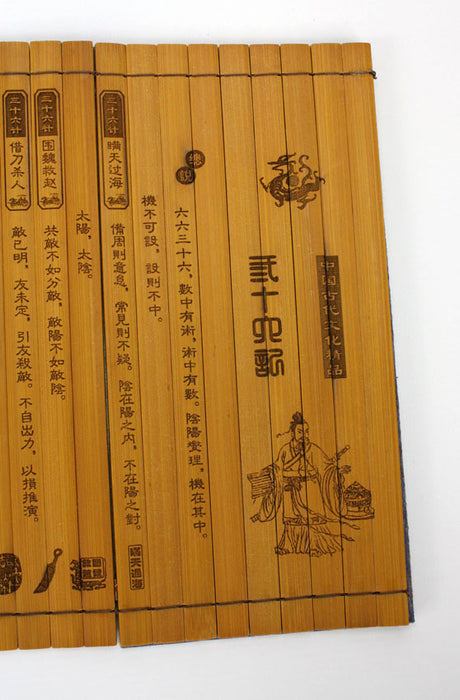 中国古代文化精品
三十六計
總說
六六三十六，數中有術，術中有數。陰陽燮理，機在其中。
機不可設，設則不中。
三十六计
瞒天过海
備周則意怠，常見則不疑。陰在陽之内，不在陽之對。
瞞天過海
太陽，太陰。
三十六计
围魏救赵
共敵不如分敵，敵陽不如敵陰。
三十六计
借刀杀人
敵已明，友未定，引友殺敵。不自出力，以損推演。